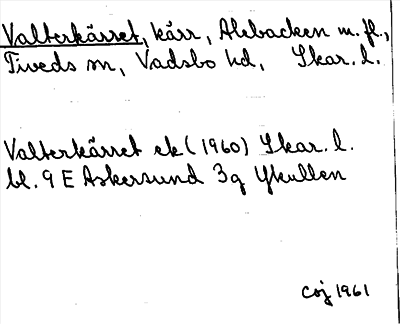 Valterkärret, kärr, Alebacken m. fl.,
Tiveds sn, Vadsbo hd, Skar. l.
Valterkärret ek (1960) Skar. l.
bl. 9 E Askersund 3g Ykullen
CoJ 1961